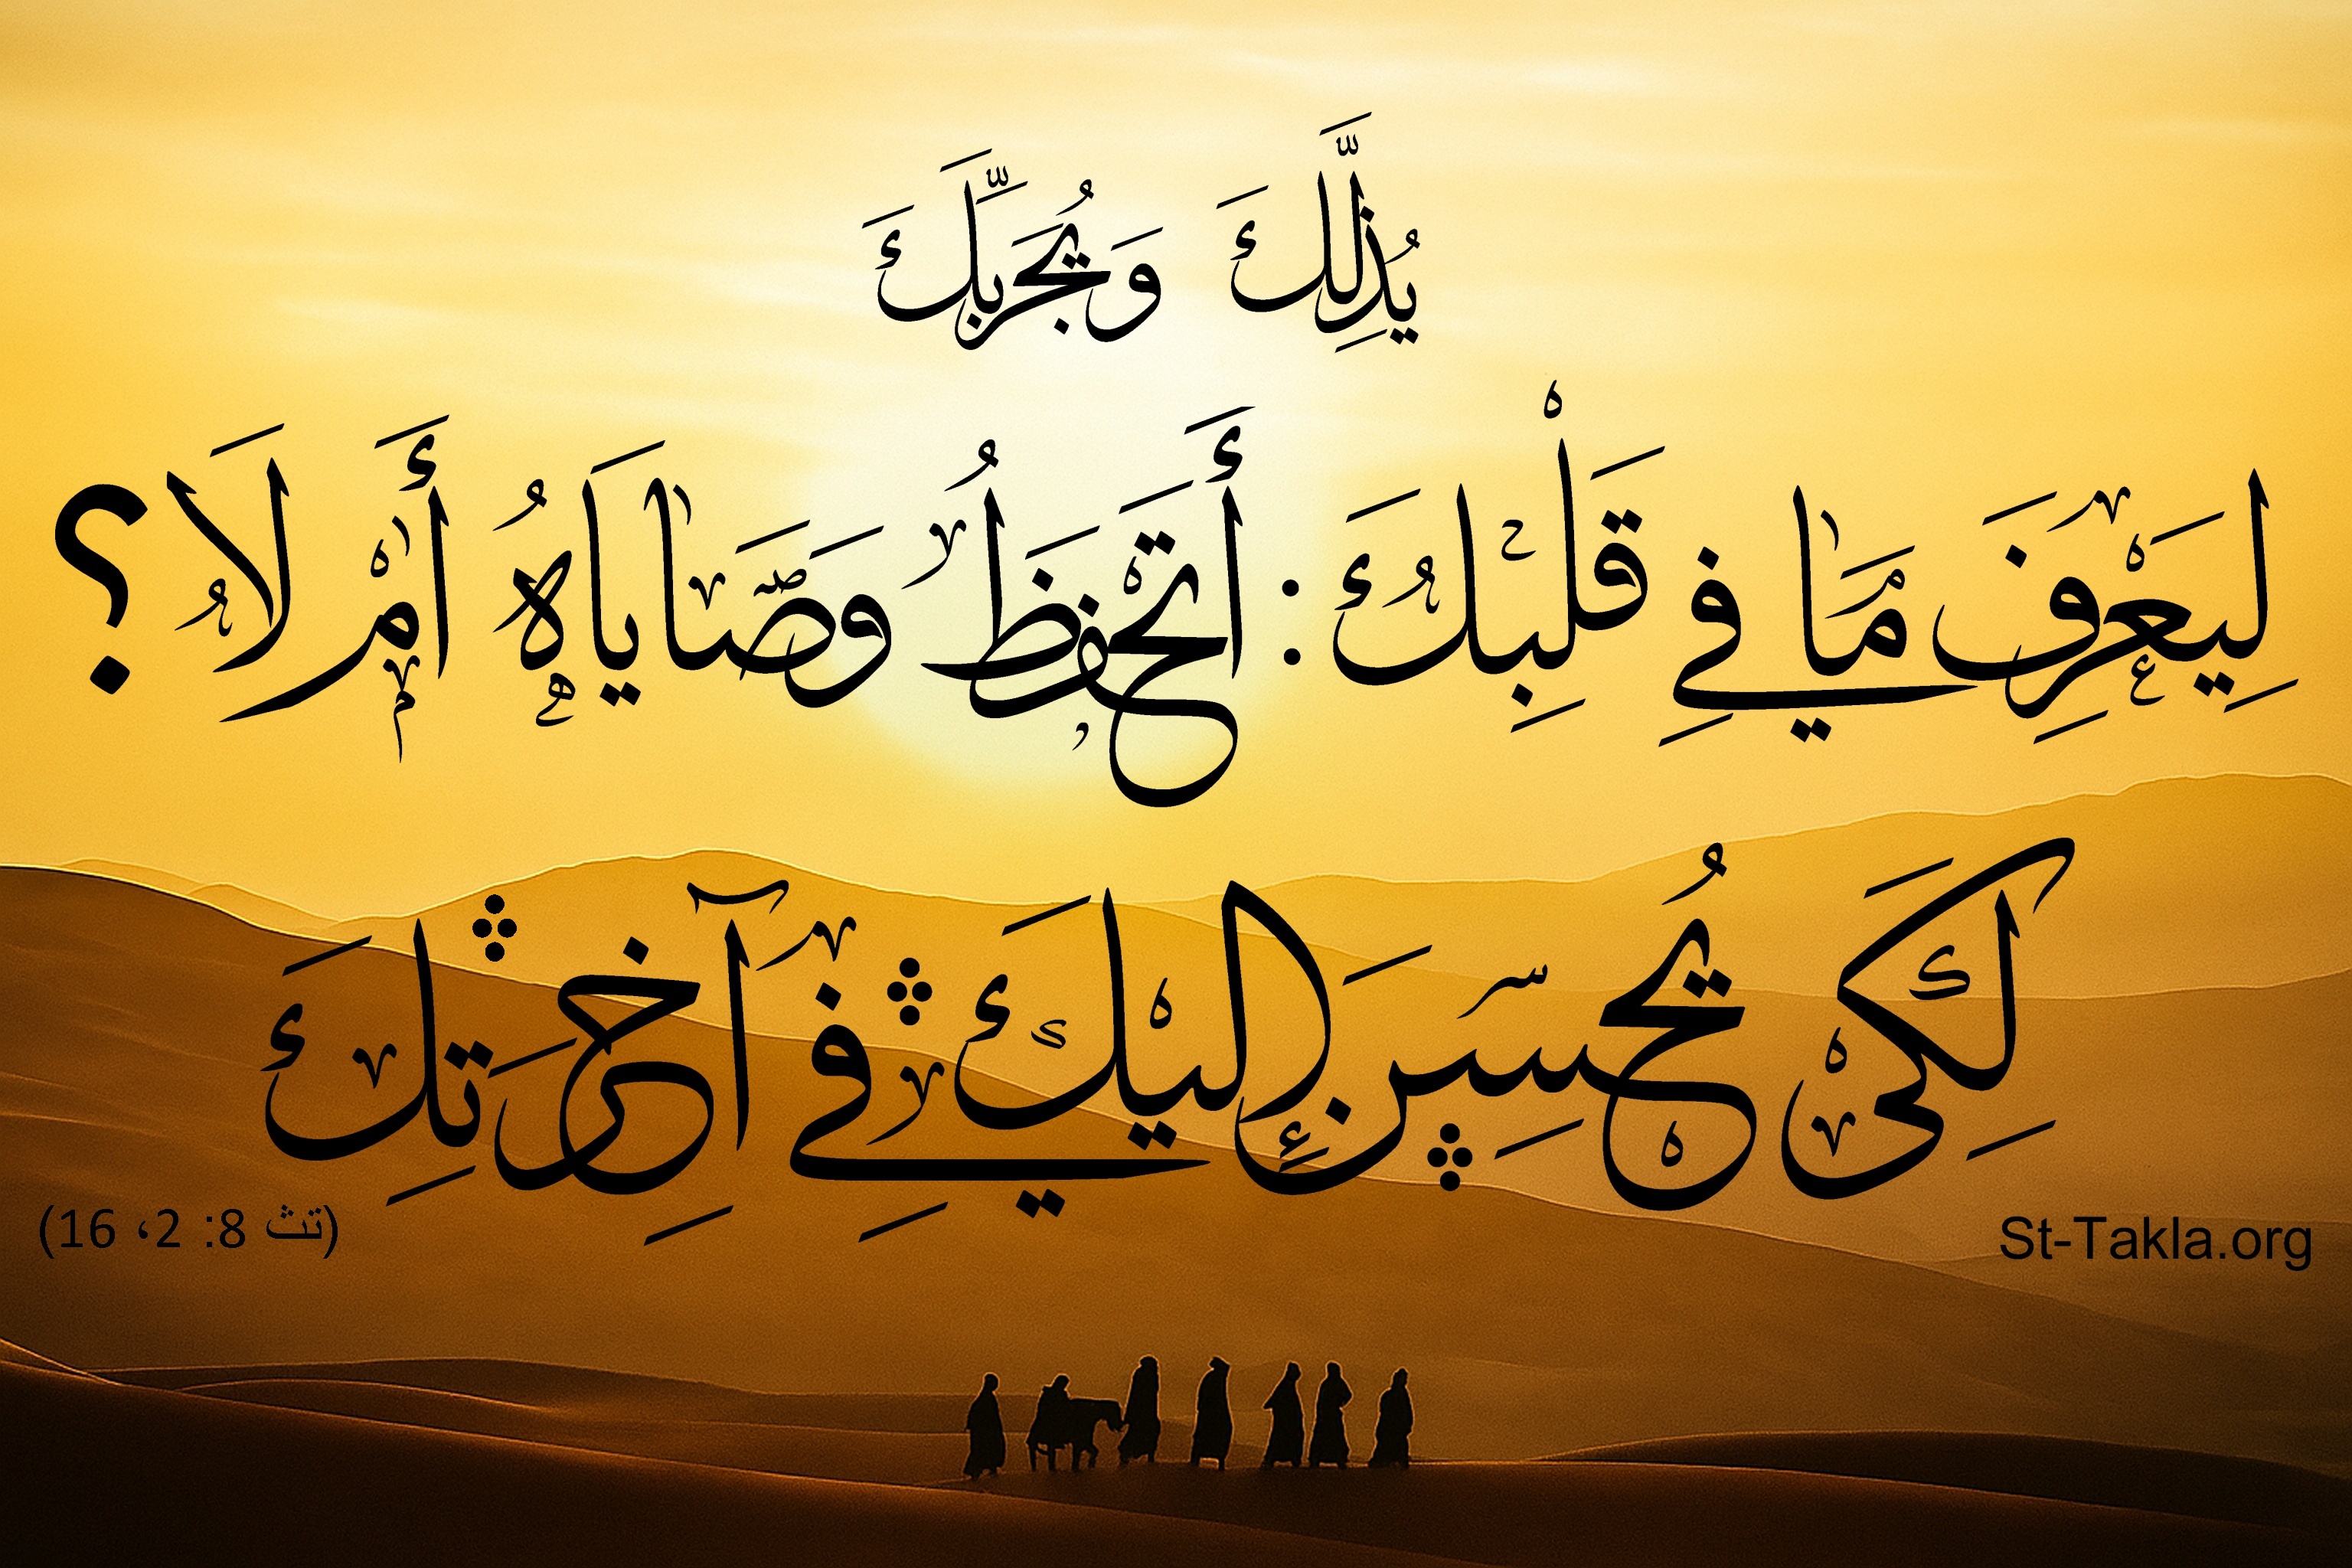 يُذِلَّكَ وَيُجَرِّبَكَ
لِيَعْرِفَ مَا فِي قَلْبِكَ: أَتَحْفَظُ وَصَّايَاهُ أَمْ لَا؟
لِكَيْ يُحْسِنَ إِليْكَ فِي آخِرَتِكَ
(تث 8: 2، 16)
St-Takla.org